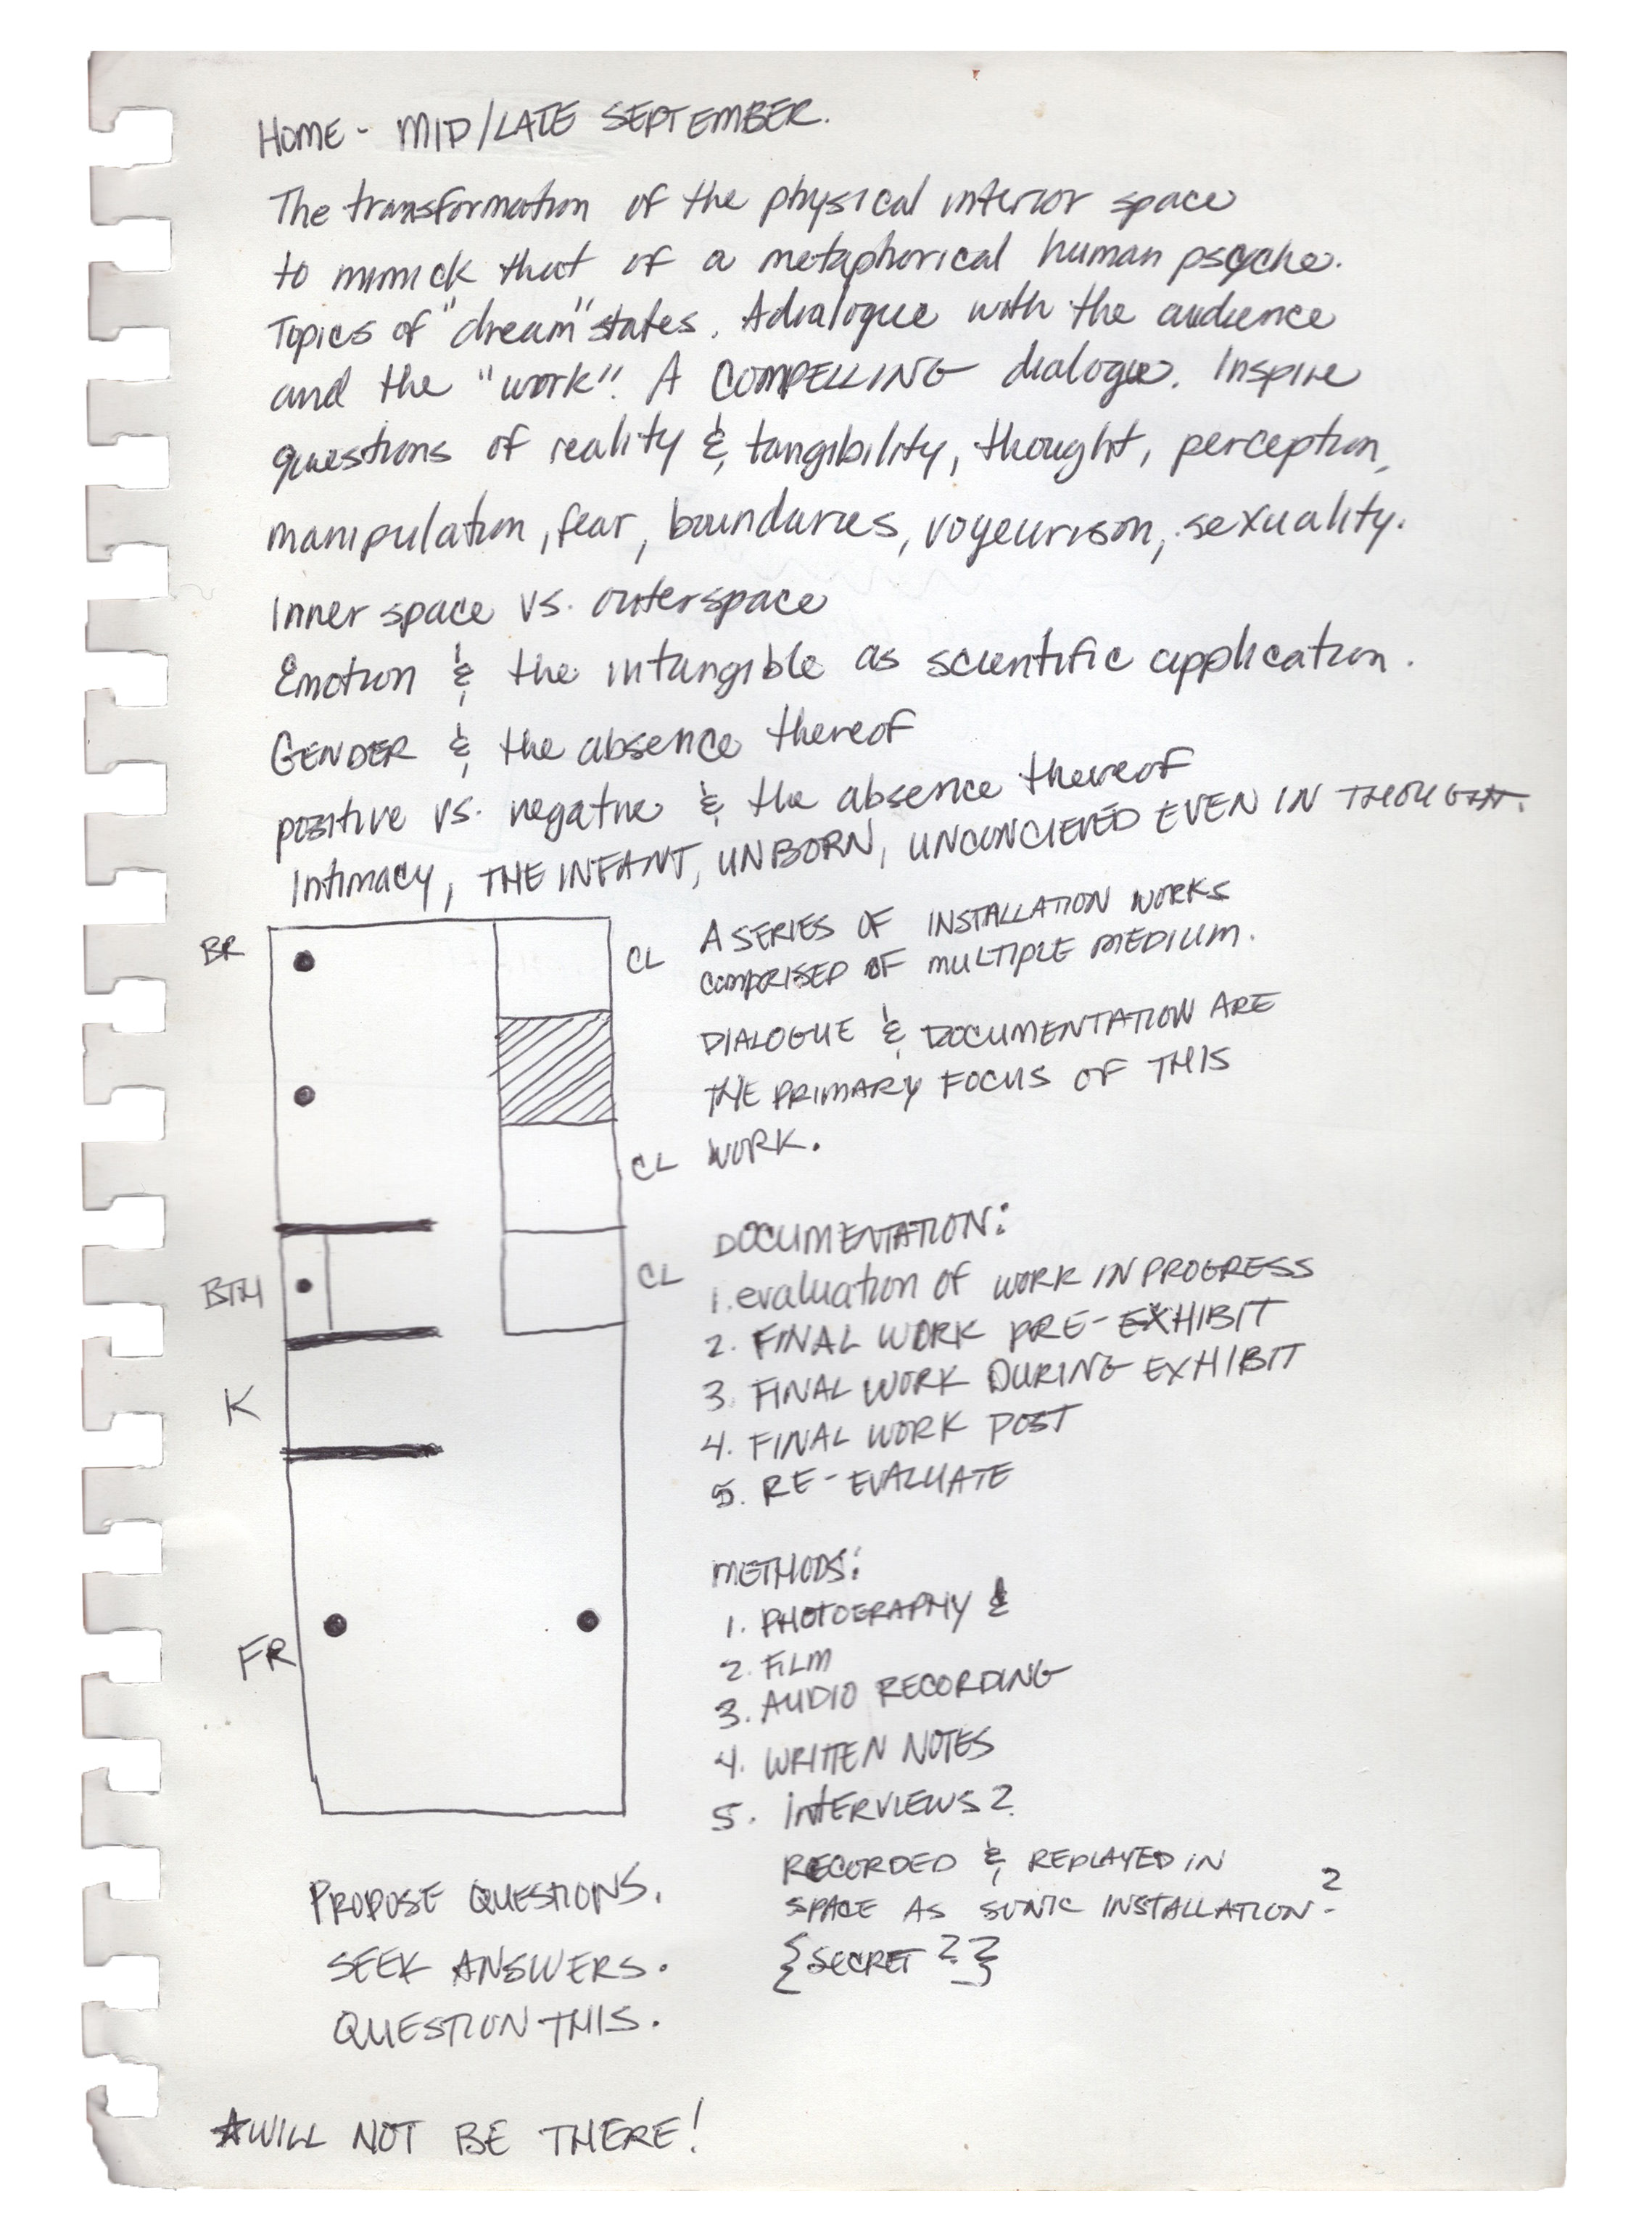 HOME - MID/LATE SEPTEMBER.
The transformation of the physical interior space
to mimick that of a metaphorical human psyche.
Topics of "dream" states. A dialogue with the audience
and the "work". A COMPELLING dialogue. Inspire
questions of reality & tangibility, thought, perception,
manipulation, fear, boundaries, voyeurism, sexuality.
Inner space vs. outerspace
Emotion & the intangible as scientific application.
GENDER & the absence thereof
positive vs. negative & the absence thereof
Intimacy, THE INFANT, UNBORN, UNCONCIEVED EVEN IN THOUGHT.
BR
CL
CL
BTH
CL
K
FR
A SERIES OF INSTALLATION WORKS
COMPRISED OF MULTIPLE MEDIUM.
DIALOGUE & DOCUMENTATION ARE
THE PRIMARY FOCUS OF THIS
WORK.
DOCUMENTATION:
1. evaluation of WORK IN PROGRESS
2. FINAL WORK PRE-EXHIBIT
3. FINAL WORK DURING EXHIBIT
4. FINAL WORK POST
5. RE-EVALUATE
METHODS:
1. PHOTOGRAPHY &
2. FILM
3. AUDIO RECORDING
4. WRITTEN NOTES
5. INTERVIEWS?
RECORDED & REPLAYED IN
SPACE AS SONIC INSTALLATION-?
{SECRET??}
PROPOSE QUESTIONS.
SEEK ANSWERS.
QUESTION THIS.
★WILL NOT BE THERE!